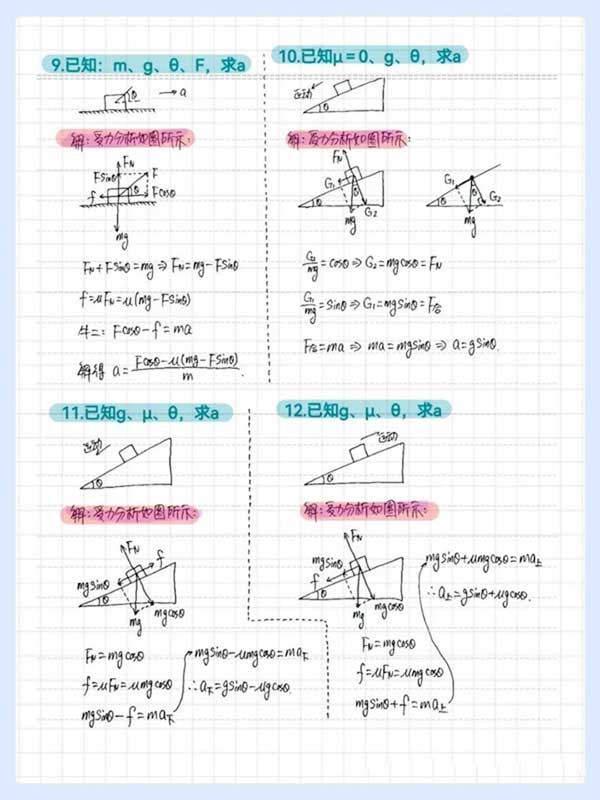 9.已知：m、g、θ、F，求a
θ
→a
解：受力分析如图所示：
FN
Fsinθ
F
f
θ
Fcosθ
mg
FN+Fsinθ=mg⇒FN=mg-Fsinθ
f=μFN=μ(mg-Fsinθ)
牛二：Fcosθ-f=ma
解得 a=\frac{Fcosθ-μ(mg-Fsinθ)}{m}.
10.已知μ=0、g、θ，求a
运动
θ
解：受力分析如图所示：
FN
G1
θ
θ
G2
mg
G1
θ
θ
G2
mg
\frac{G2}{mg}=cosθ⇒G2=mgcosθ=FN
\frac{G1}{mg}=sinθ⇒G1=mgsinθ=F合
F合=ma⇒ma=mgsinθ⇒a=gsinθ.
11.已知g、μ、θ，求a
运动
θ
解：受力分析如图所示：
FN
f
mgsinθ
θ
mgcosθ
mg
FN=mgcosθ
f=μFN=μmgcosθ
mgsinθ-f=ma下
mgsinθ-μmgcosθ=ma下
∴a下=gsinθ-μgcosθ
12.已知g、μ、θ，求a
运动
θ
解：受力分析如图所示：
FN
mgsinθ
f
θ
mgcosθ
mg
FN=mgcosθ
f=μFN=μmgcosθ
mgsinθ+f=ma上
mgsinθ+μmgcosθ=ma上
∴a上=gsinθ+μgcosθ.